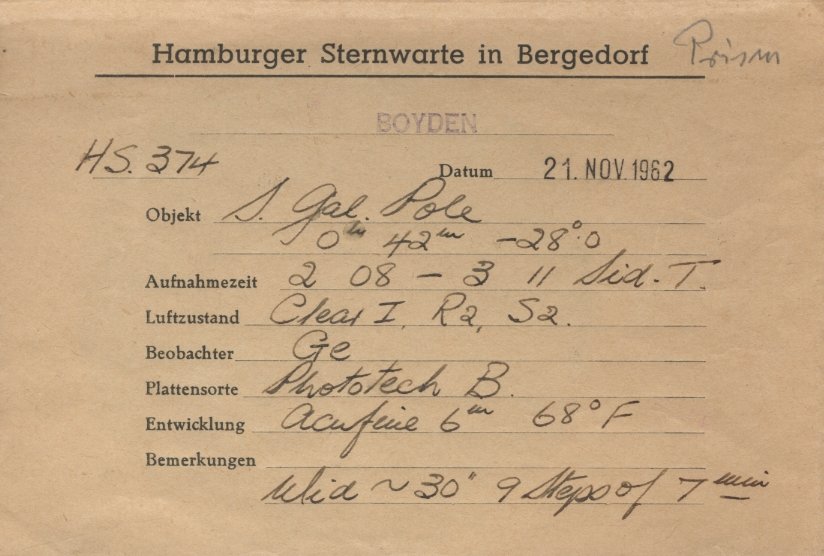 Hamburger Sternwarte in Bergedorf Prism
BOYDEN
HS. 374
Datum 21. NOV. 1962
Objekt S. Gal. Pole
0h 42m -28°.0
Aufnahmezeit 2 08 – 3 11 Sid. T.
Luftzustand Clear I, R2, S2.
Beobachter Ge
Plattensorte Phototech B.
Entwicklung Acufine 6m 68°F
Bemerkungen
Wid ~ 30" 9 Steps of 7 min